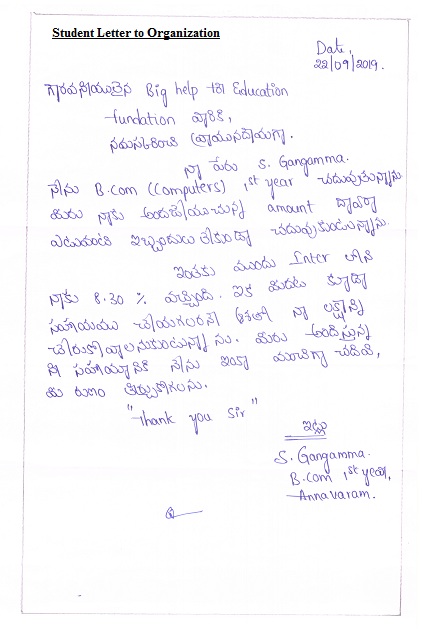 Student Letter to Organization
Date,
22/09/2019.
గౌరవనీయులైన Big help for Education
fundation వారికి,
నమస్కరించి వ్రాయునదేమనగా.
నా పేరు S. Gangamma.
నేను B.com (Computers) 1st year చదువుకున్నాను
మీరు నాకు అందజేయుచున్న amount ద్వారా
ఎటువంటి ఇబ్బందులు లేకుండా చదువుకుంటున్నాను.
ఇంతకు ముందు Inter లోని
నాకు 8.30 % వచ్చింది. ఇక మీదట కూడా
సహాయము చేయగలరనే ఆశతో నా లక్ష్యాన్ని
చేరుకోవాలనుకుంటున్నాను. మీరు అందిస్తున్న
ఈ సహాయానికి నేను ఇంకా మంచిగా చదివి,
మీ రుణం తీర్చుకోగలను.
"Thank you Sir"
ఇట్లు
S. Gangamma.
B.com 1st year,
Annavaram.